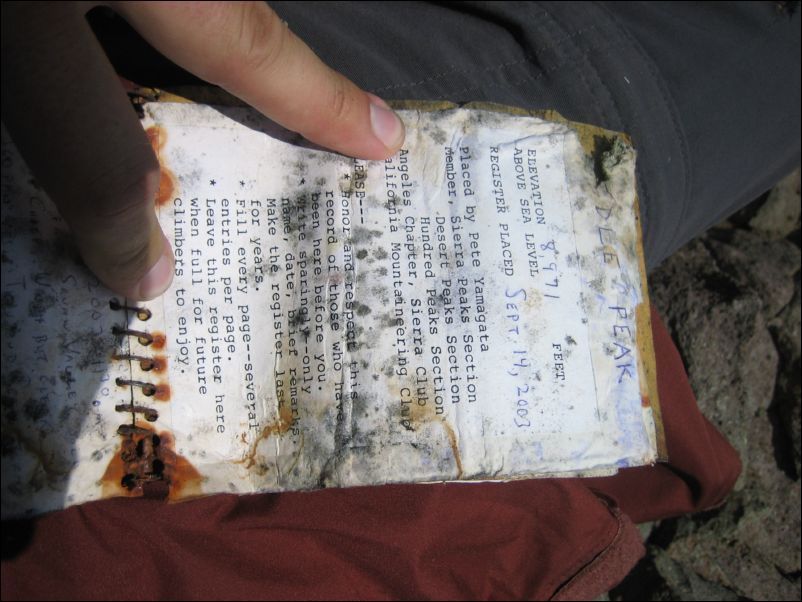 PEAK
ELEVATION 8991 FEET
ABOVE SEA LEVEL
REGISTER PLACED SEPT. 14, 2003
Placed by Pete Yamagata
Member, Sierra Peaks Section
Desert Peaks Section
Hundred Peaks Section
Angeles Chapter, Sierra Club
California Mountaineering Club
PLEASE----
* Honor and respect this
record of those who have
been here before you.
* Write sparingly--only
name, date, brief remarks
Make the register last
for years.
* Fill every page--several
entries per page.
* Leave this register here
when full for future
climbers to enjoy.